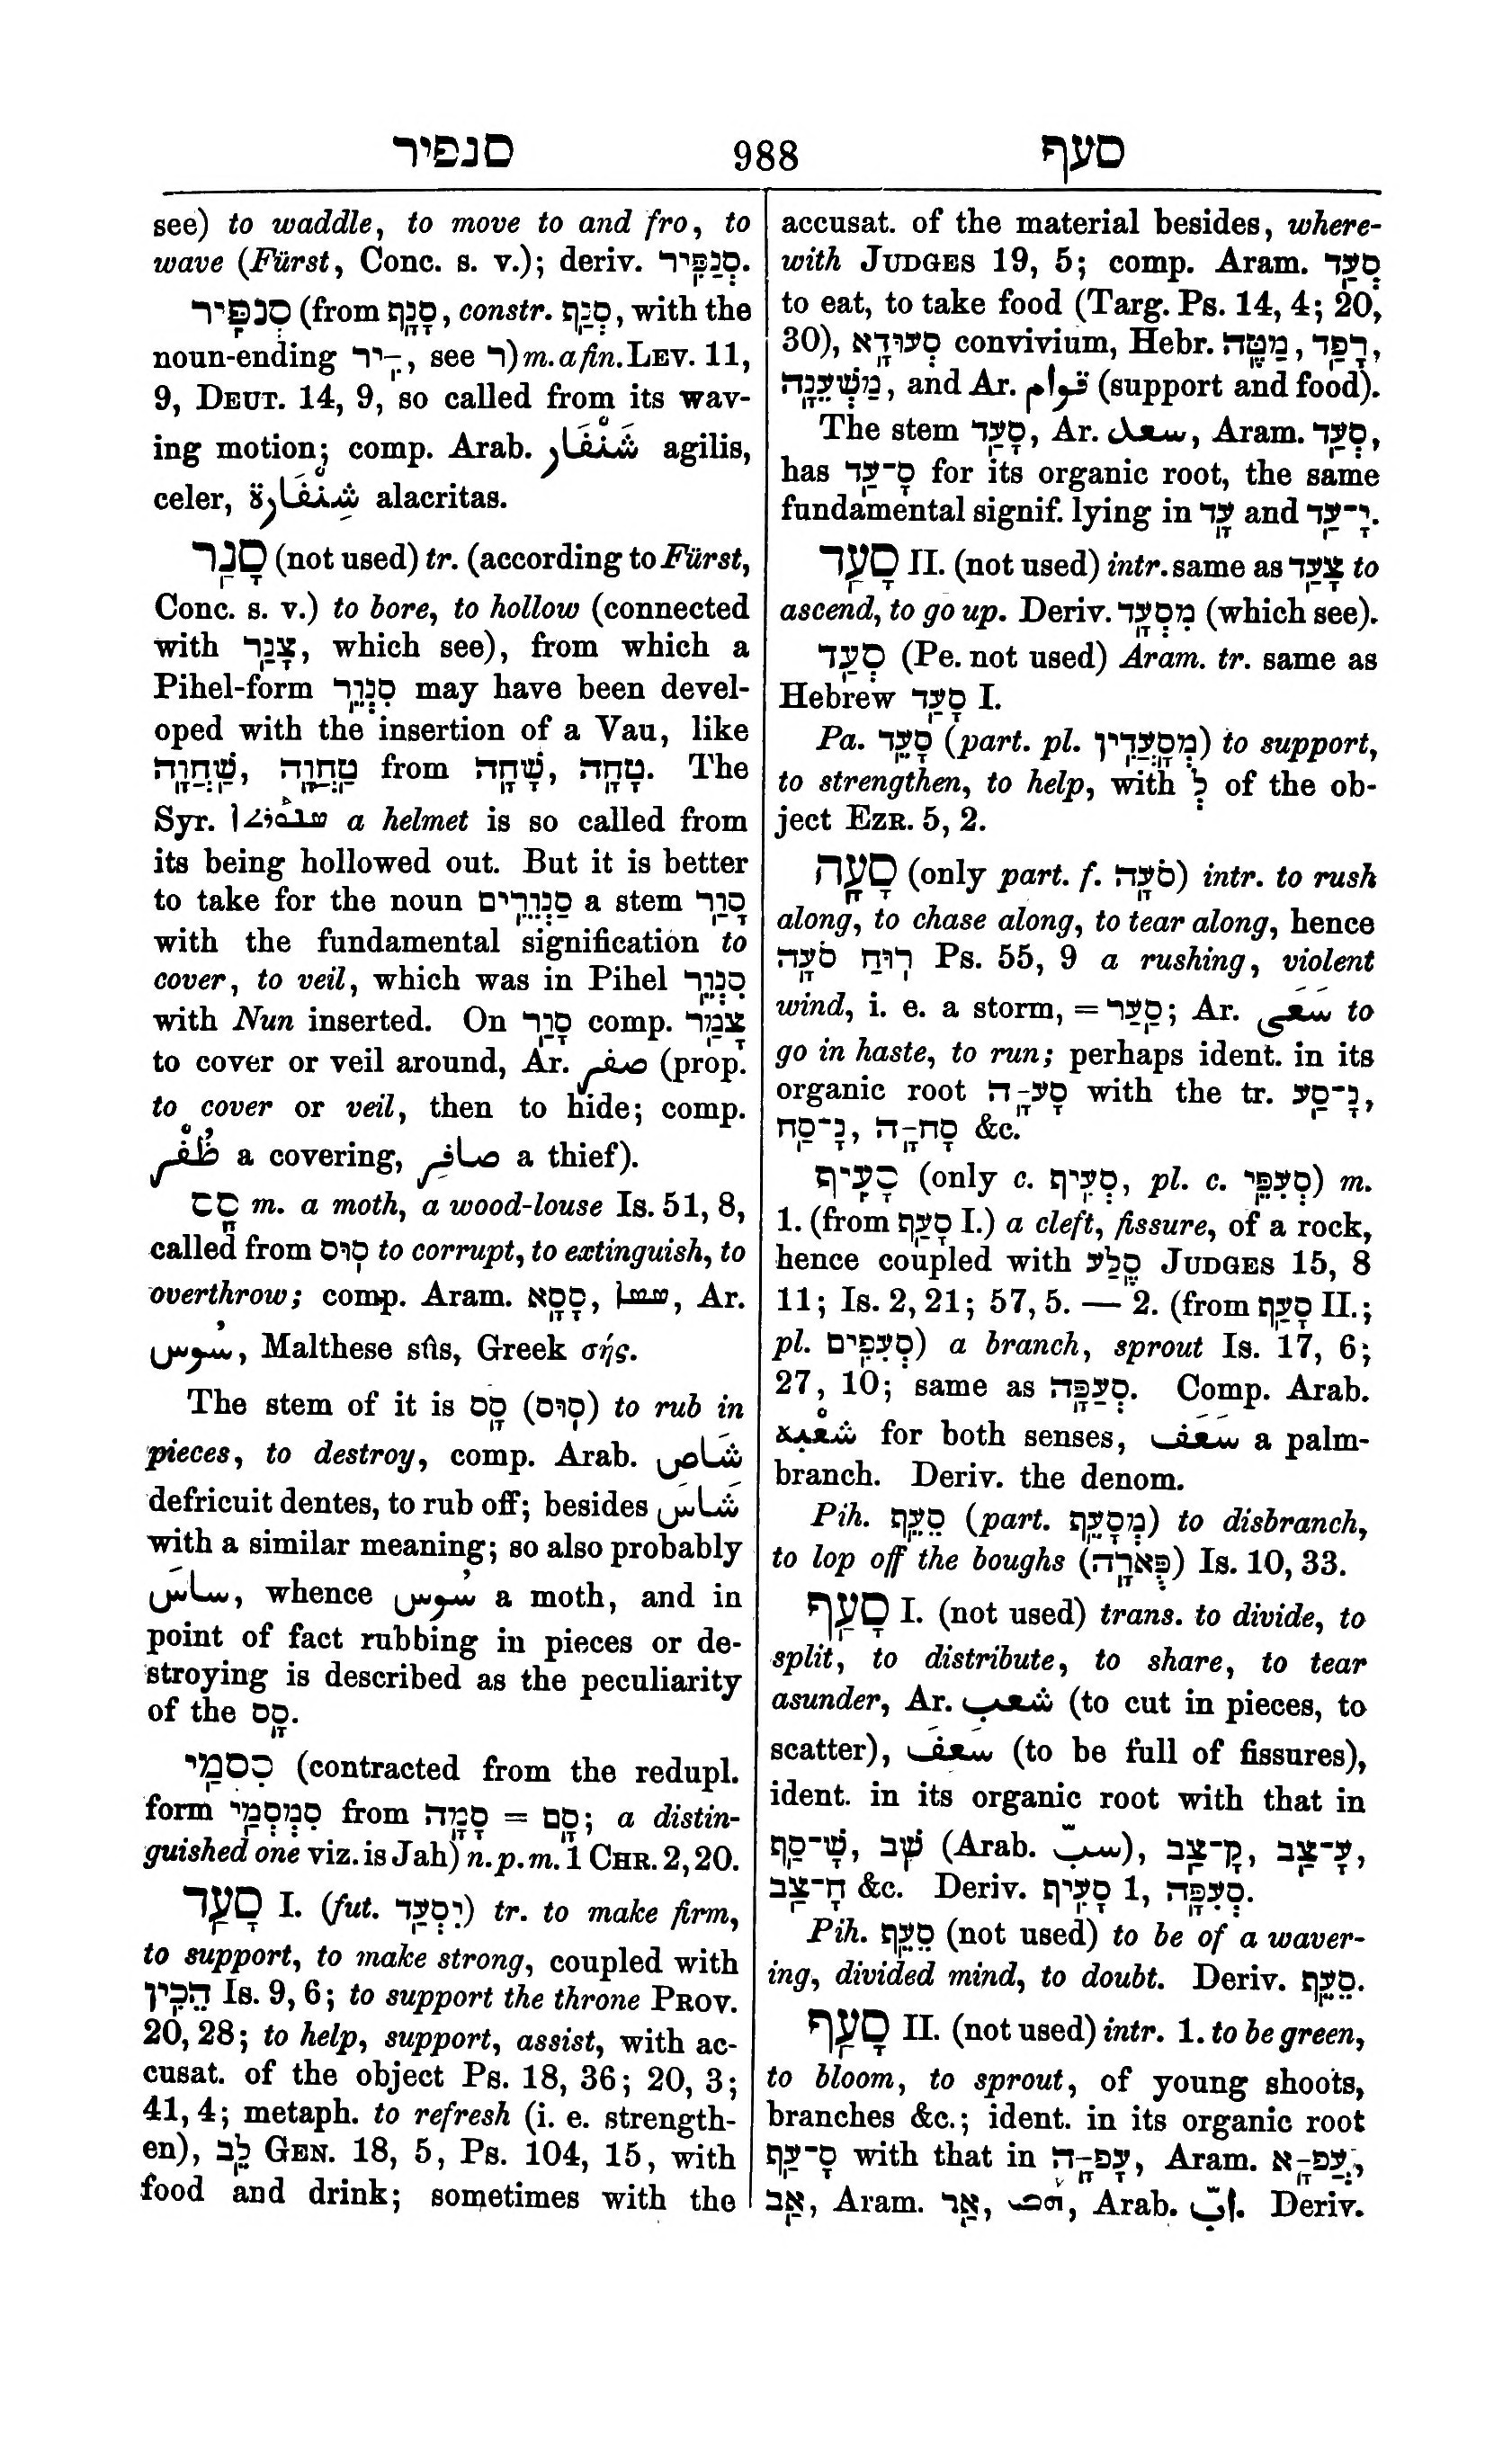 סנפיר 988 סעף
see) to waddle, to move to and fro, to
wave (Fürst, Conc. s. v.); deriv. סְנַפִּיר.
סְנַפִּיר (from סָנָף, constr. סְנַף, with the
noun-ending ־ִיר, see ר) m. a fin. LEV. 11,
9, DEUT. 14, 9, so called from its wav-
ing motion; comp. Arab. شَنْفَار agilis,
celer, شِنْفَارة alacritas.
סָנַר (not used) tr. (according to Fürst,
Conc. s. v.) to bore, to hollow (connected
with צָנַר, which see), from which a
Pihel-form סִנְוֵר may have been devel-
oped with the insertion of a Vau, like
שַׁחֲוָה, טַחֲוָה from שָׁחָה, טָחָה. The
Syr. ܣܢܘܪܬܐ a helmet is so called from
its being hollowed out. But it is better
to take for the noun סַנְוֵרִים a stem סָוַר
with the fundamental signification to
cover, to veil, which was in Pihel סִנְוֵר
with Nun inserted. On סָוַר comp. צָמַר
to cover or veil around, Ar. صفر (prop.
to cover or veil, then to hide; comp.
ظُفْر a covering, صافِر a thief).
סָס m. a moth, a wood-louse Is. 51, 8,
called from סוּס to corrupt, to extinguish, to
overthrow; comp. Aram. סָסָא, ܣܣܐ, Ar.
سُوس, Malthese sûs, Greek σής.
The stem of it is סָס (סוּס) to rub in
pieces, to destroy, comp. Arab. شَاص
defricuit dentes, to rub off; besides شَاسَ
with a similar meaning; so also probably
ساسَ, whence سُوس a moth, and in
point of fact rubbing in pieces or de-
stroying is described as the peculiarity
of the סָס.
סִסְמַי (contracted from the redupl.
form סִמְסְמַי from סָמָה = סָם; a distin-
guished one viz. is Jah) n. p. m. 1 CHR. 2, 20.
סָעַד I. (fut. יִסְעַד) tr. to make firm,
to support, to make strong, coupled with
הֵכִין Is. 9, 6; to support the throne PROV.
20, 28; to help, support, assist, with ac-
cusat. of the object Ps. 18, 36; 20, 3;
41, 4; metaph. to refresh (i. e. strength-
en), לֵב GEN. 18, 5, Ps. 104, 15, with
food and drink; sometimes with the
accusat. of the material besides, where-
with JUDGES 19, 5; comp. Aram. סְעַד
to eat, to take food (Targ. Ps. 14, 4; 20,
30), סְעוּדָא convivium, Hebr. מַטֶּה, רָפַד,
מַשְׁעֵנָה, and Ar. قوام (support and food).
The stem סָעַד, Ar. سعد, Aram. סְעַד,
has סָ־עַד for its organic root, the same
fundamental signif. lying in עָד and יָ־עַד.
סָעַד II. (not used) intr. same as צָעַד to
ascend, to go up. Deriv. מִסְעָד (which see).
סְעַד (Pe. not used) Aram. tr. same as
Hebrew סָעַד I.
Pa. סָעֵד (part. pl. מְסָעֲדִין) to support,
to strengthen, to help, with לְ of the ob-
ject EZR. 5, 2.
סָעָה (only part. f. סֹעָה) intr. to rush
along, to chase along, to tear along, hence
רוּחַ סֹעָה Ps. 55, 9 a rushing, violent
wind, i. e. a storm, = סַעַר; Ar. سَعَى to
go in haste, to run; perhaps ident. in its
organic root סָעָ־ה with the tr. נָ־סַע,
סָחָ־ה, נָ־סַח &c.
סָעִיף (only c. סְעִיף, pl. c. סְעִפֵּי) m.
1. (from סָעַף I.) a cleft, fissure, of a rock,
hence coupled with סֶלַע JUDGES 15, 8
11; Is. 2, 21; 57, 5. — 2. (from סָעַף II.;
pl. סְעִפִּים) a branch, sprout Is. 17, 6;
27, 10; same as סְעַפָּה. Comp. Arab.
شعْبة for both senses, سَعَف a palm-
branch. Deriv. the denom.
Pih. סֵעֵף (part. מְסָעֵף) to disbranch,
to lop off the boughs (פֻּארָה) Is. 10, 33.
סָעַף I. (not used) trans. to divide, to
split, to distribute, to share, to tear
asunder, Ar. شعب (to cut in pieces, to
scatter), سَعَفَ (to be full of fissures),
ident. in its organic root with that in
שָׁ־סַף, שָׁב (Arab. سبّ), קָ־צַב, עָ־צַב,
חָ־צַב &c. Deriv. סָעִיף 1, סְעִפָּה.
Pih. סֵעֵף (not used) to be of a waver-
ing, divided mind, to doubt. Deriv. סֵעֵף.
סָעַף II. (not used) intr. 1. to be green,
to bloom, to sprout, of young shoots,
branches &c.; ident. in its organic root
סָ־עַף with that in עָפָ־ה, Aram. עֲפָ־א,
אָב, Aram. Arab. ابّ. Deriv.